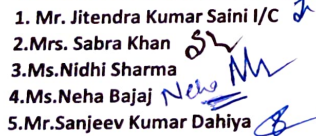 1. Mr. Jitendra Kumar Saini I/C
2.Mrs. Sabra Khan
3.Ms.Nidhi Sharma
4.Ms.Neha Bajaj Neha
5.Mr.Sanjeev Kumar Dahiya